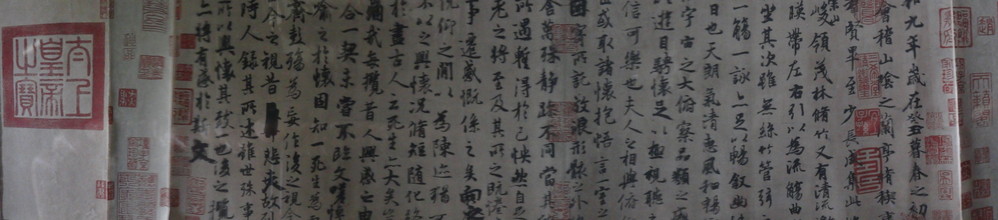 和九年歲在癸丑暮春之初
會稽山陰之蘭亭脩禊
群賢畢至少長咸集此
崇山峻領茂林脩竹又有清流
暎帶左右引以為流觴曲
坐其次雖無絲竹管弦
一觴一詠亦足以暢敘幽
日也天朗氣清惠風和暢
宇宙之大俯察品類之
以遊目騁懷足以極視聽
信可樂也夫人之相與俯
世或取諸懷抱悟言一室之
因寄所託放浪形骸之外
舍萬殊靜躁不同當其
所遇蹔得於己怏然自
老之將至及其所之既惓
事遷感慨係之矣向之
俛仰之閒以為陳迹猶
不以之興懷況脩短隨化終
於盡古人云死生亦大矣
痛哉每攬昔人興感之由
合一契未嘗不臨文嗟悼
喻之於懷固知一死生為
齊彭殤為妄作後之視今
今之視昔悲夫故列
時人錄其所述雖世殊事
所以興懷其致一也後之攬
亦將有感於斯文
太上皇帝之寶